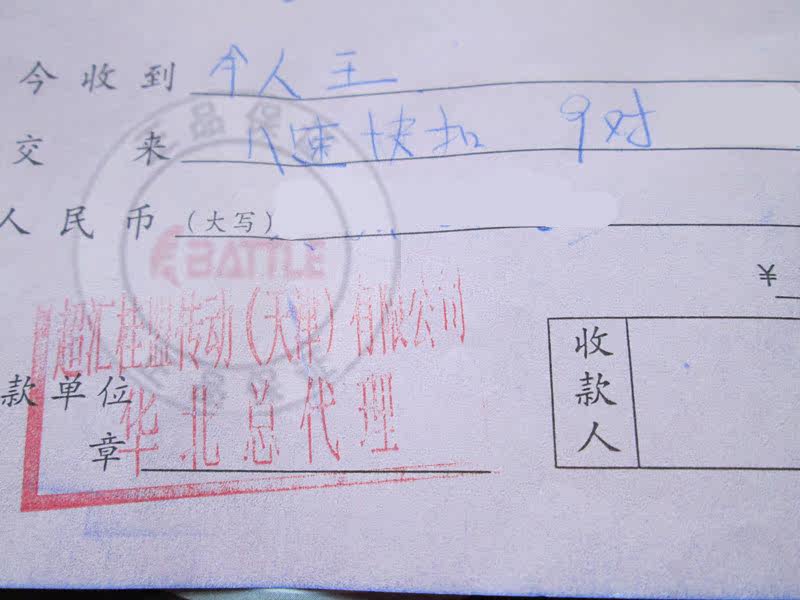 今收到 个人王
交来 八速快扣 9对
人民币(大写)
¥
正品保
BATTLE
超汇桂盟传动(天津)有限公司
华北总代理
款单位
章
收款人